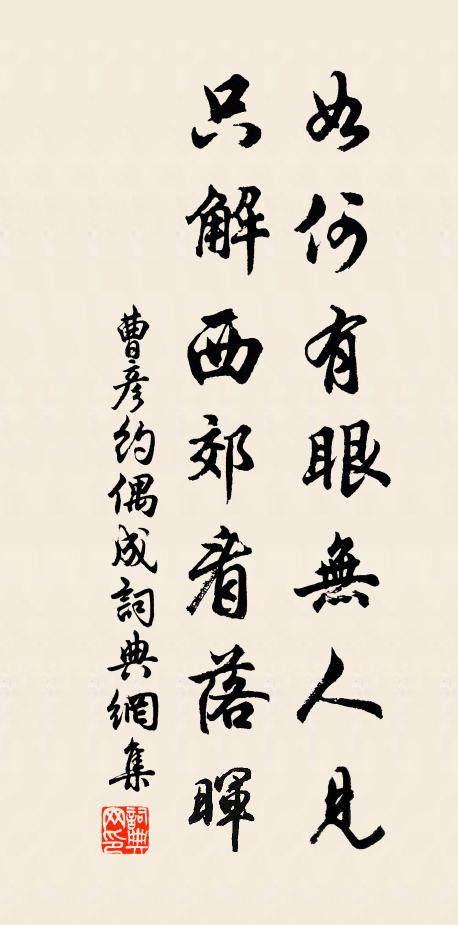 如何有眼無人見
只解西郊看落暉
曹彦約偶成詞典網集
詞典网印